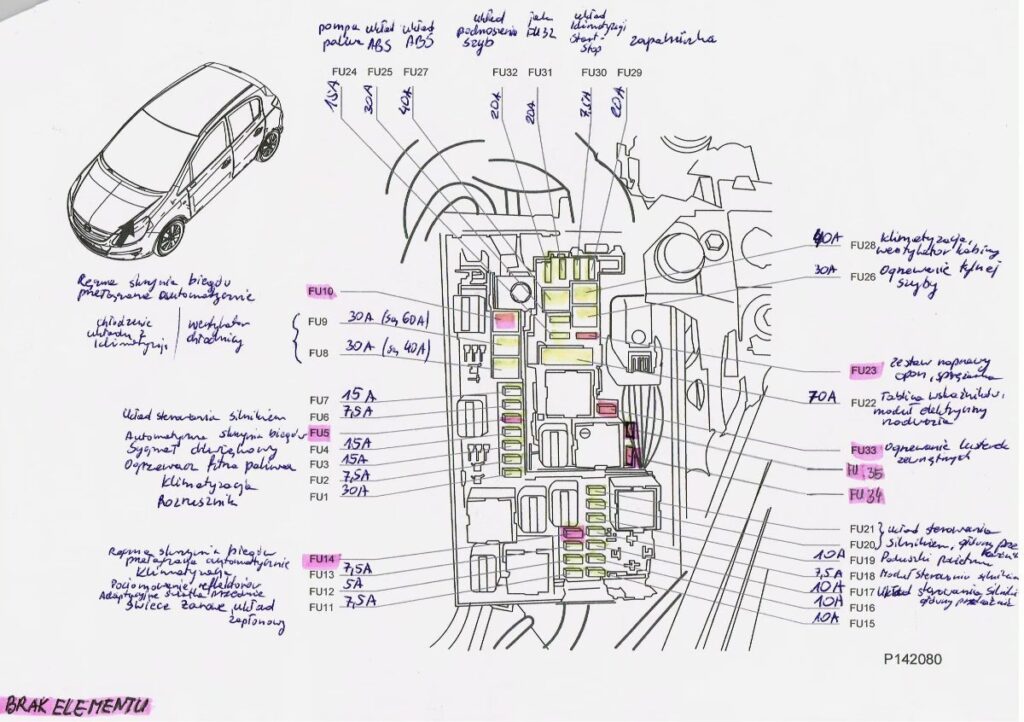 pompa paliwa
układ ABS
układ ABS
układ podnoszenia szyb
jak FU32
układ klimatyzacji Start-Stop
zapalniczka
FU24
FU25
FU27
FU32
FU31
FU30
FU29
15A
30A
40A
20A
20A
7,5A
20A
40A FU28 Klimatyzacja, wentylator kabiny
30A FU26 Ogrzewanie tylnej szyby
Ręczna skrzynia biegów przełączana automatycznie
FU10
chłodzenie układu z klimatyzacją
wentylator chłodnicy
FU9 30A (są 60A)
FU8 30A (są 40A)
FU7 15A
Układ sterowania silnikiem FU6 7,5A
Automatyczna skrzynia biegów FU5
Sygnał dźwiękowy FU4 15A
Ogrzewacz filtra paliwa FU3 15A
Klimatyzacja FU2 7,5A
Rozrusznik FU1 30A
FU23 Zestaw naprawy opon, sprężarka
70A FU22 Tablica wskaźników, moduł elektryczny nadwozia
FU33 Ogrzewanie lusterek zewnętrznych
FU35
FU34
Ręczna skrzynia biegów przełączana automatycznie FU14
Klimatyzacja FU13 7,5A
Poziomowanie reflektorów
Adaptacyjne światła przednie FU12 5A
Świece żarowe, układ zapłonowy FU11 7,5A
FU21
FU20
układ sterowania silnikiem, główny
10A FU19 Poduszki
7,5A FU18 Moduł sterowania silnikiem
10A FU17 Układ sterowania silnika główny przekaźnik
10A FU16
10A FU15
P142080
BRAK ELEMENTU